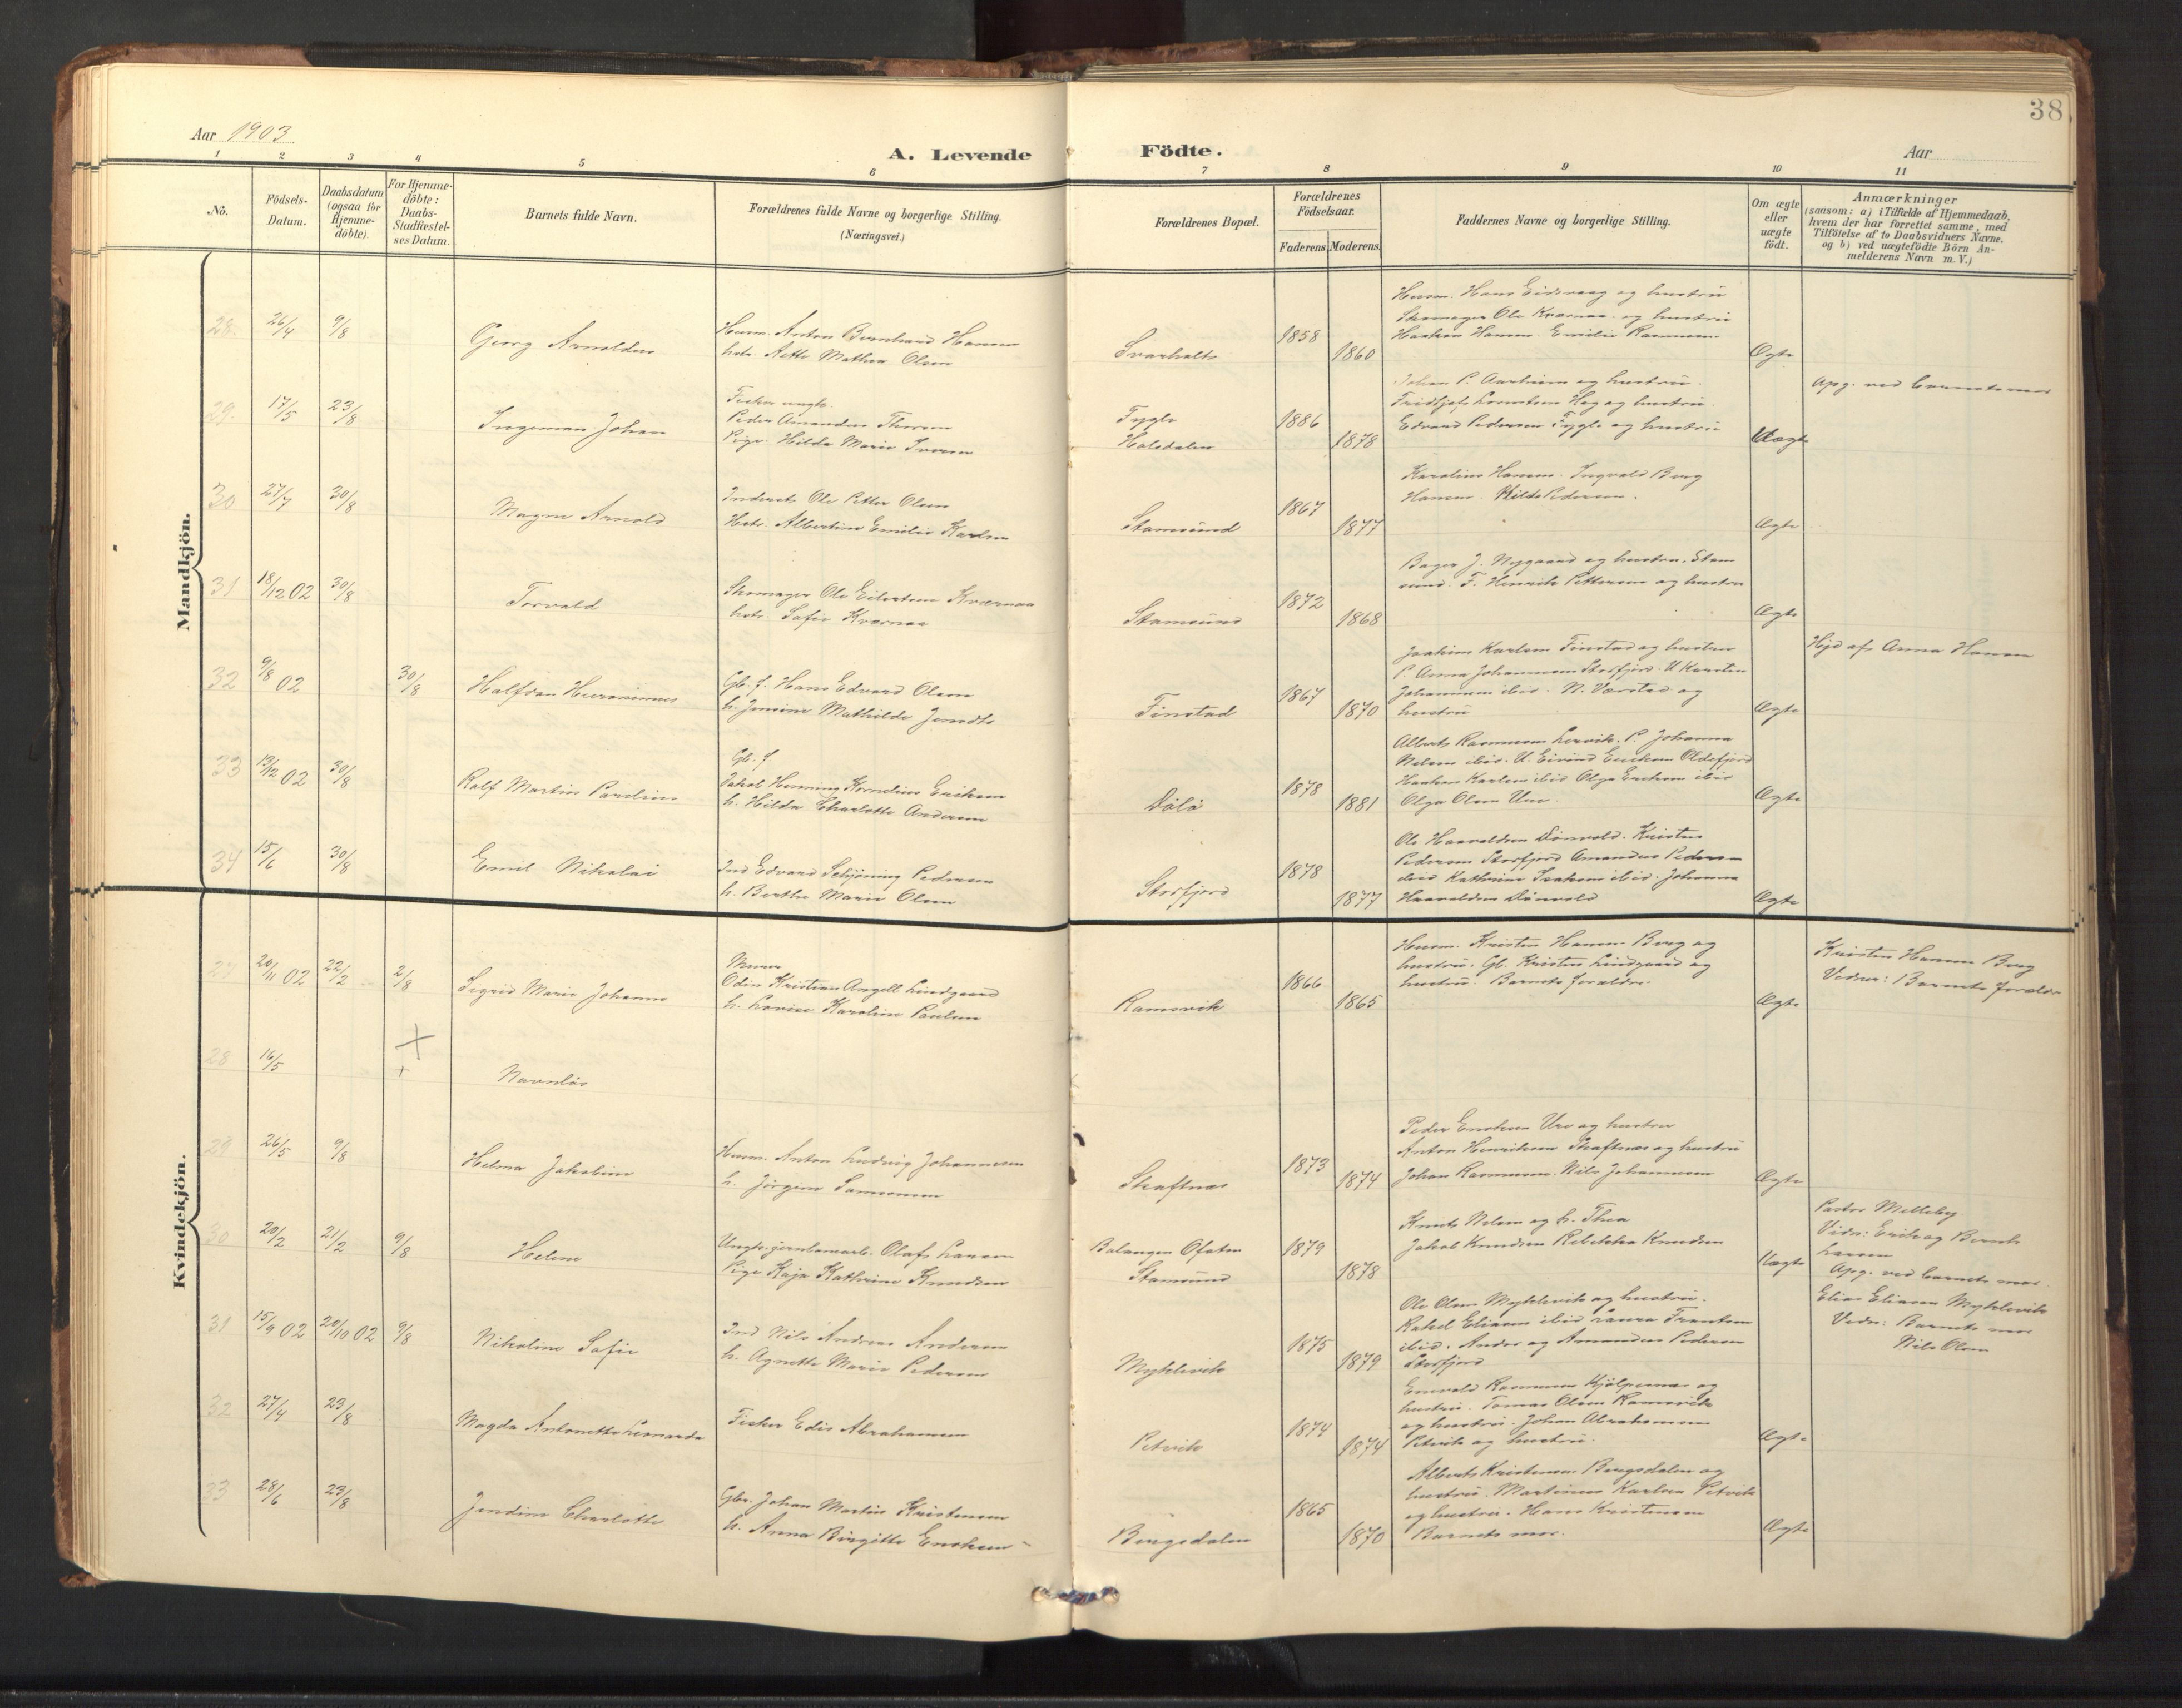 38
Aar 1903
A. Levende Födte.
Aar
1 2 3 4 5 6 7 8 9 10 11
No.
Födsels-Datum.
Daabsdatum (ogsaa for Hjemme-döbte).
For Hjemme-döbte: Daabs-Stadfæstel-ses Datum.
Barnets fulde Navn.
Forældrenes fulde Navne og borgerlige Stilling. (Næringsvei.)
Forældrenes Bopæl.
Forældrenes Födselsaar.
Faderens. Moderens.
Faddernes Navne og borgerlige Stilling.
Om ægte eller uægte født.
Anmærkninger
(saasom: a) i Tilfælde af Hjemmedaab, hvem der har forrettet samme, med Tilföielse af to Daabsvidners Navne. og b) ved uægtefödte Börn Anmelderens Navn m. V.)
Mandkjön.
28. 26/4 9/8
Georg Arnoldus
Husm. Anton Bernhard Hansen
hstr. Mathea Olsen
Svarholt
1858
1860
Husm. Hans Eidsvaag og hustru
Skomager Ole Kværnaa og hustru
Haakon Hansen. Emilie Rasmussen
Ægte
29. 17/5 23/8
Ingeman Johan
Fisker ungk.
Peder Amandus Thoresen
Pige. Hilda Marie Iversen
Fygle
Holsdalen
1886
1878
Johan P. Aarheim og hustru.
Fridtjof Lorentsen Hag og hustru.
Edvard Pedersen Fygle og hustru
Uægte
Apg. ved barnets mor
30 27/7 30/8
Magne Arnold
Inderst Ole Petter Olsen
Hstr. Albertine Emilie Karlsen
Stamsund
1867
1877
Karoline Hansen. Ingvald Berg
Hansen. Hilda Pedersen.
Ægte
31 18/12 02 30/8
Torvald
Skomager Ole Eilertsen Kværnaa
hstr. Sofie Kværnaa
Stamsund
1872
1868
Bager J. Nygaard og hustru, Stam
sund. F. Henrik Pettersen og hustru
Ægte
32 9/8 02 30/8
Halfdan Hieronimus
Gb. f. Hans Edvard Olsen
h. Jensine Mathilde
Finstad
1867
1870
Joakim Karlsen Finstad og hustru
P. Anna Johannesen Storfjord. U. Karsten
Johannesen ibid. N. Værstad og
hustru
Ægte
Hjd af Anna Hansen
33 13/12 02 30/8
Rolf Martin Paulius
Gb. f.
Jakob Henning Kornelius Eriksen
h. Hilda Charlotte Andersen
1878
1881
Albert Rasmussen. P. Johanna
Nelsen ibid. U. Eivind Eriksen
Haakon Karlsen ibid Olga Eriksen ibid
Olga Olsen Ure.
Ægte
34 15/6 30/8
Emil Nikolai
Ind Edvard Schjöning Pedersen
h. Berthe Marie Olsen
Storfjord
1878
1877
Ole Haavaldsen. Kristen
Pedersen Storfjord Amandus Pedersen
ibid Kathrine Isaksen ibid. Johanna
Haavaldsen
Ægte
Kvindekjön.
27 20/11 02 22/2 2/8
Sigrid Marie Johanne
Murer
Odin Kristian Angell Lindgaard
h. Lovise Karoline Paulsen
Ramsvik
1866
1865
Husm. Kristen Hansen Berg og
hustru. Gb. Kristen Lindgaard og
hustru. Barnets foraldre.
Ægte
Kristen Hansen Berg
Vidner: Barnets foraldre
28 16/5
+
+
Navnløs
29 26/5 9/8
Helma Jakobine
Husm. Anton Ludvig Johannesen
h. Jørgine Samuelsen
Skaftnes
1873
1874
Peder Eriksen Ure og hustru
Anton Henriksen Skaftnes og hustru
Johan Rasmussen. Nils Johannesen
Ægte
30 20/2 21/2 9/8
Helene
Ungk. jernbanearb. Olaf Larsen
Pige Kaja Kathrine Knudsen
Balangen Ofoten
Stamsund
1879
1878
Knut Nelsen og h. Thea
Jakob Knudsen Rebekka Knudsen
Uægte
Pastor Melleby
Vidn: Erik og Berntt
Larsen
Apg. ved barnets mor
31 15/9 02 20/10 02 9/8
Nikoline Sofie
Ind Nils Andreas Andersen
h. Agnethe Marie Pedersen
Myklevik
1875
1879
Ole Olsen Myklevik og hustru.
Rakel Eliasen ibid Laura Frantsen
ibid. Andor og Amandus Pedersen
Storfjord
Elias Eliasen Myklevik
Vidn: Barnets mor
Nils Olsen
32 27/4 23/8
Magda Antonette Leonarda
Fisker Edis Abrahamsen
Petvik
1874
1874
Rasmussen Kjölpesnes og
hustru. Tomas Olsen Ramsvik
og hustru. Johan Abrahamsen
Petvik og hustru.
Ægte
33 28/6 23/8
Jendine Charlotte
Gbr. Johan Martin Kristensen
h. Anna Birgitte Eriksen
Bergsdalen
1865
1870
Albert Kristensen Bergsdalen og
hustru. Martinus Karlsen Petvik
og hustru. Hans Kristensen
Barnets mor.
Ægte